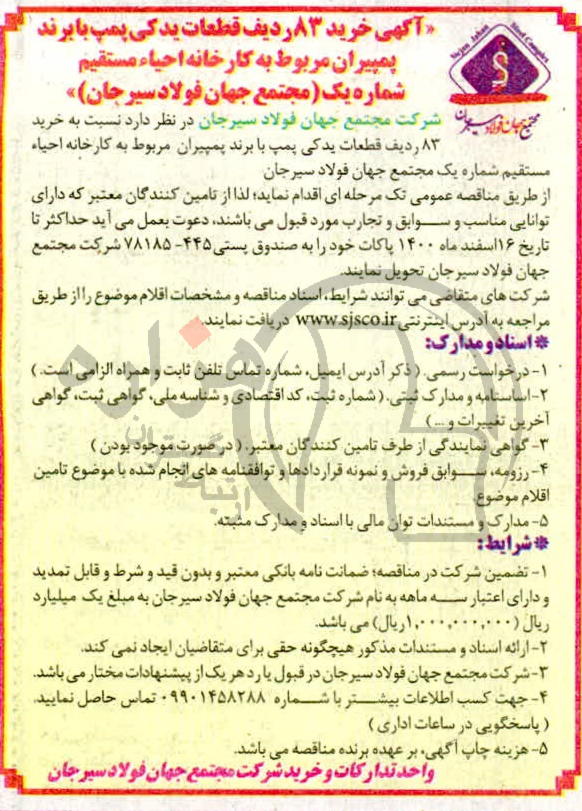 «آگهی خرید ۸۳ ردیف قطعات یدکی پمپ با برند
پمپیران مربوط به کارخانه احیاء مستقیم
شماره یک (مجتمع جهان فولاد سیرجان)»
Sirjan Jahan Steel Complex
مجتمع جهان فولاد سیرجان
شرکت مجتمع جهان فولاد سیرجان در نظر دارد نسبت به خرید
۸۳ ردیف قطعات یدکی پمپ با برند پمپیران مربوط به کارخانه احیاء
مستقیم شماره یک مجتمع جهان فولاد سیرجان
از طریق مناقصه عمومی تک مرحله ای اقدام نماید؛ لذا از تامین کنندگان معتبر که دارای
توانایی مناسب و سوابق و تجارب مورد قبول می باشند، دعوت بعمل می آید حداکثر تا
تاریخ ۱۶اسفند ماه ۱۴۰۰ پاکات خود را به صندوق پستی۴۴۵- ۷۸۱۸۵ شرکت مجتمع
جهان فولاد سیرجان تحویل نمایند.
شرکت های متقاضی می توانند شرایط، اسناد مناقصه و مشخصات اقلام موضوع را از طریق
مراجعه به آدرس اینترنتی www.sjsco.ir دریافت نمایند.
*اسناد و مدارک:
۱- درخواست رسمی. ( ذکر آدرس ایمیل، شماره تماس تلفن ثابت و همراه الزامی است. )
۲-اساسنامه و مدارک ثبتی. ( شماره ثبت، کد اقتصادی و شناسه ملی، گواهی ثبت، گواهی
آخرین تغییرات و ... )
۳- گواهی نمایندگی از طرف تامین کنندگان معتبر. ( در صورت موجود بودن )
۴- رزومه، سوابق فروش و نمونه قراردادها و توافقنامه های انجام شده با موضوع تامین
اقلام موضوع.
۵- مدارک و مستندات توان مالی با اسناد و مدارک مثبته.
*شرایط:
۱- تضمین شرکت در مناقصه؛ ضمانت نامه بانکی معتبر و بدون قید و شرط و قابل تمدید
و دارای اعتبار سه ماهه به نام شرکت مجتمع جهان فولاد سیرجان به مبلغ یک میلیارد
ریال (۱,۰۰۰,۰۰۰,۰۰۰ریال) می باشد.
۲- ارائه اسناد و مستندات مذکور هیچگونه حقی برای متقاضیان ایجاد نمی کند.
۳-شرکت مجتمع جهان فولاد سیرجان در قبول یا رد هر یک از پیشنهادات مختار می باشد.
۴- جهت کسب اطلاعات بیشتر با شماره ۰۹۹۰۱۴۵۸۲۸۸ تماس حاصل نمایید.
( پاسخگویی در ساعات اداری )
۵- هزینه چاپ آگهی، بر عهده برنده مناقصه می باشد.
واحد تدارکات و خرید شرکت مجتمع جهان فولاد سیرجان